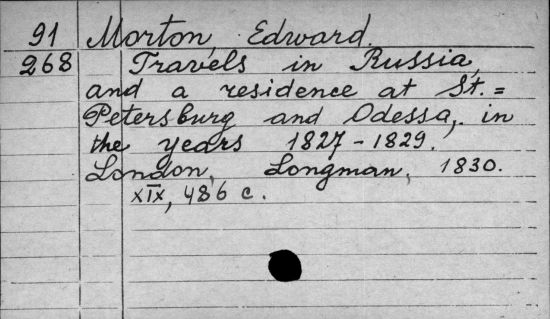 91 Morton, Edward.
268 Travels in Russia,
and a residence at St.=
Petersburg and Odessa, in
the years 1827-1829.
London, Longman, 1830.
XIX, 486 c.